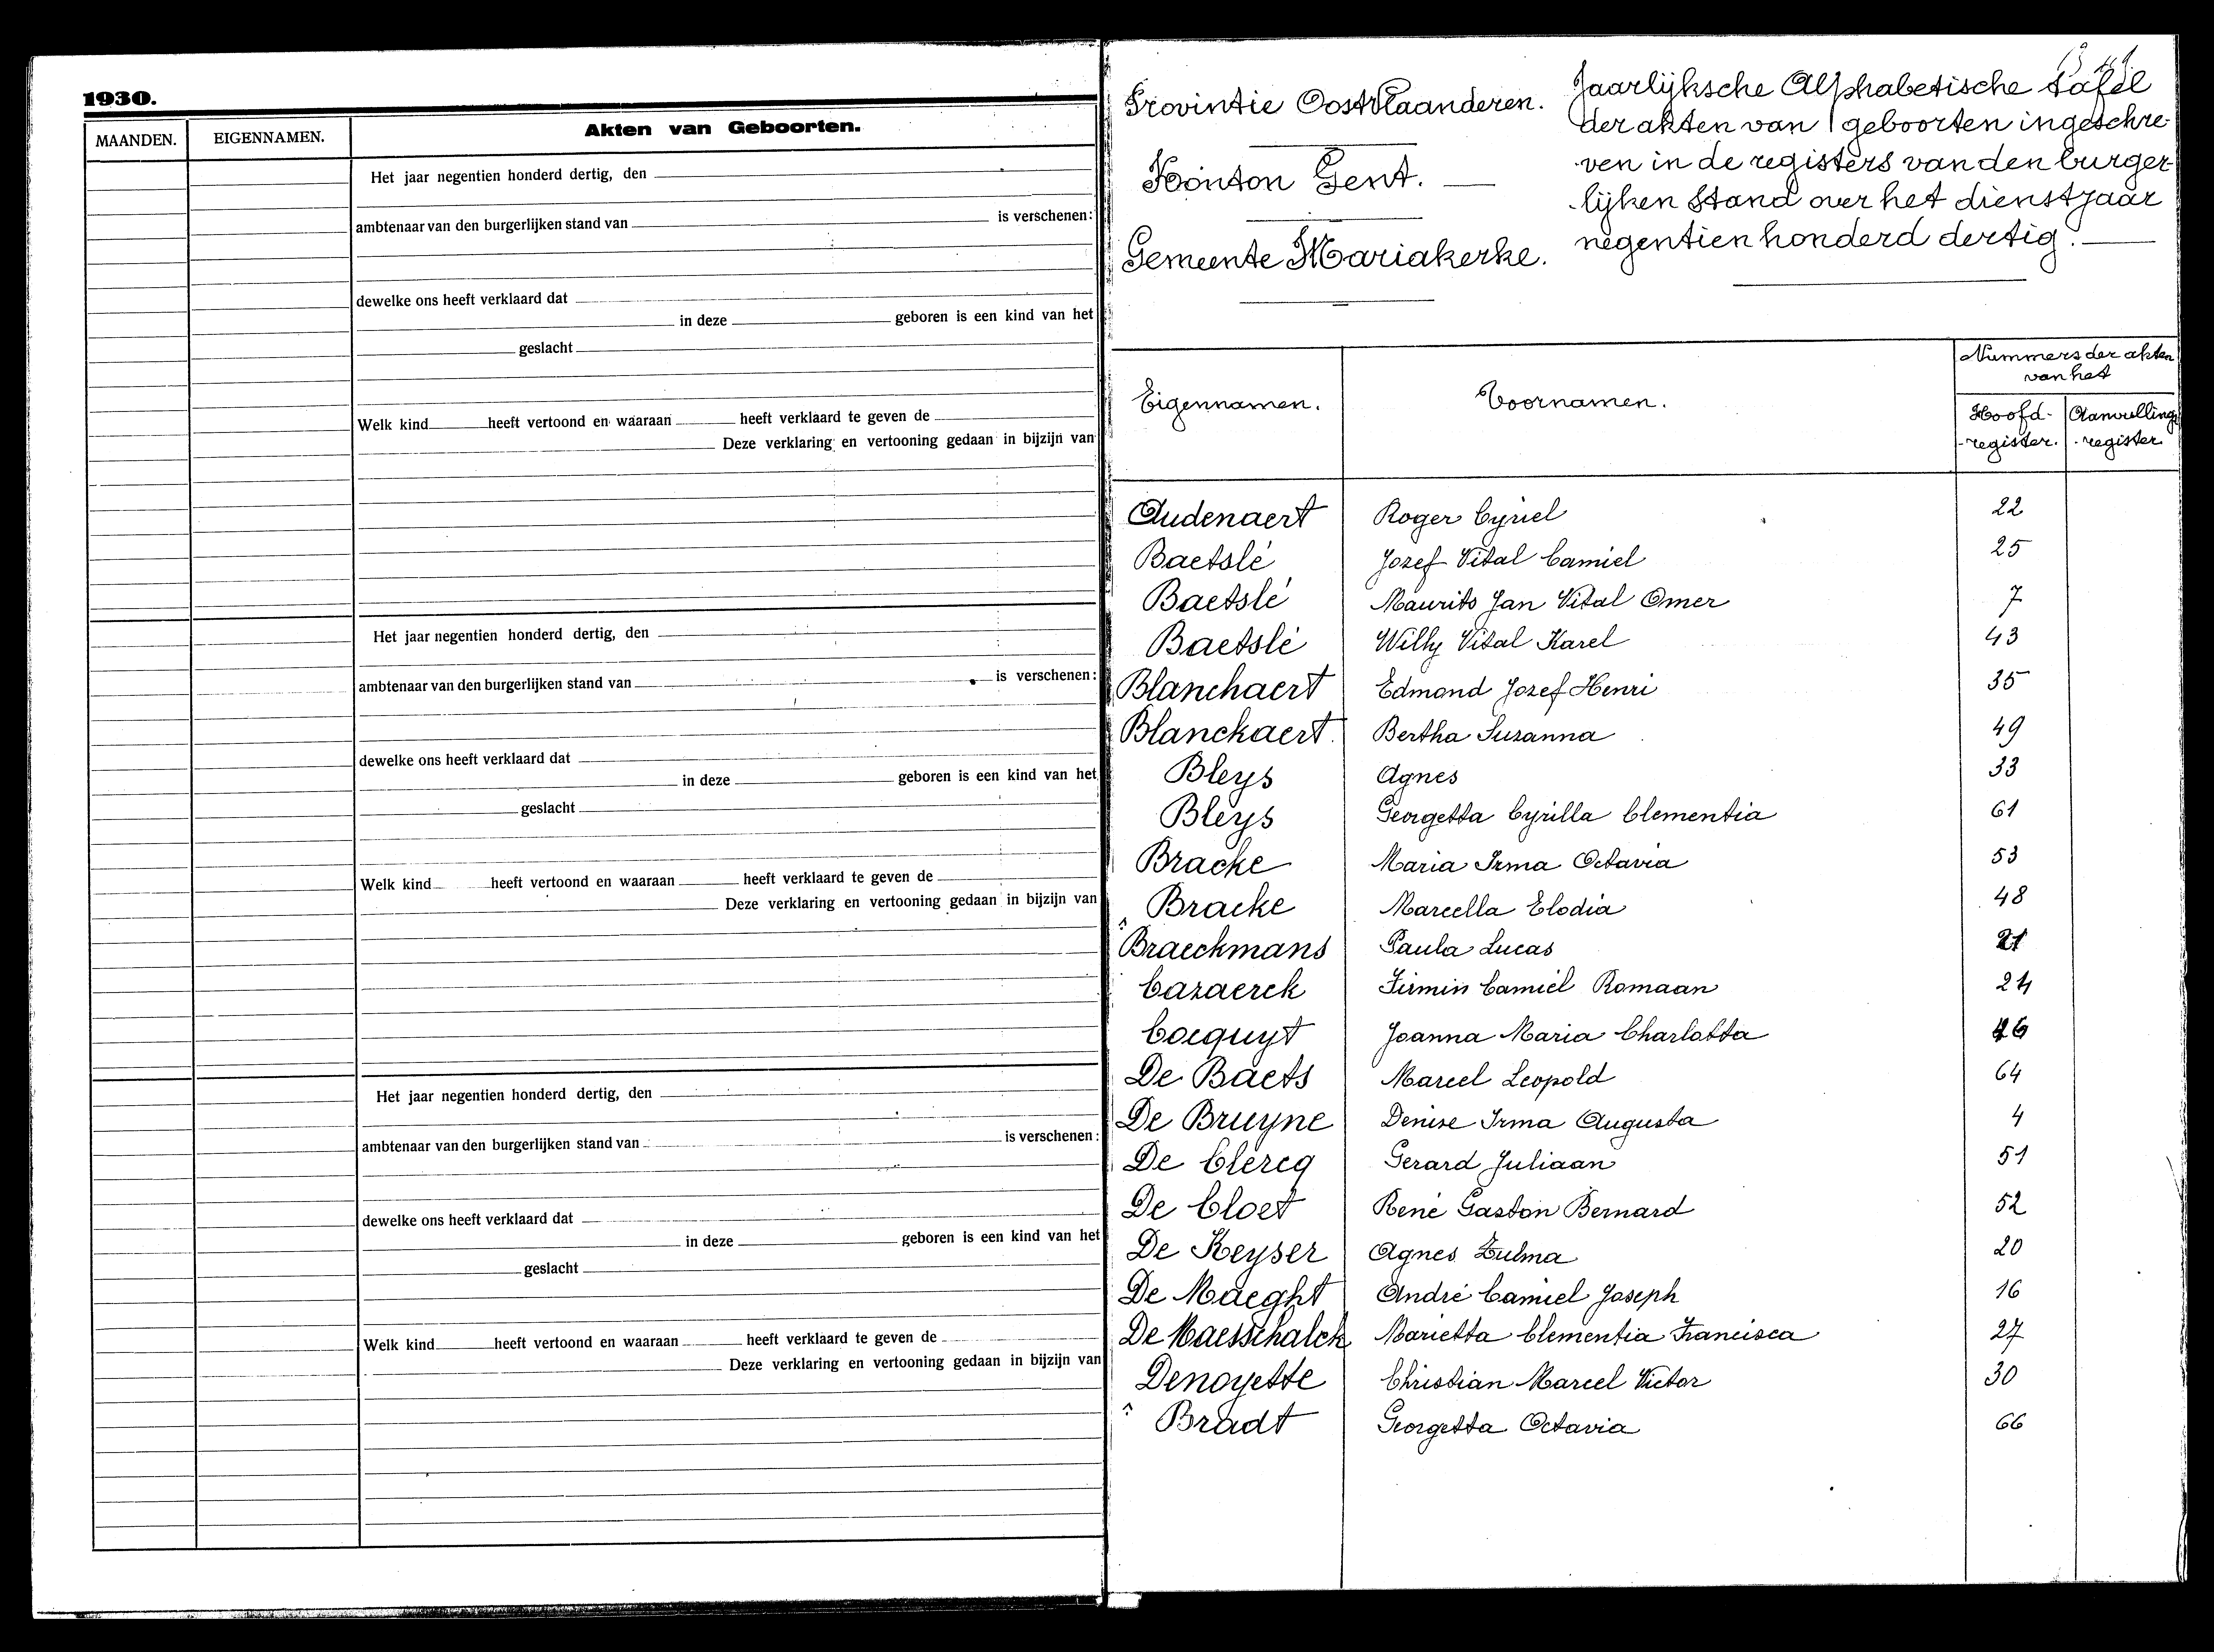 1930.
MAANDEN. EIGENNAMEN. Akten van Geboorten.
Het jaar negentien honderd dertig, den
ambtenaar van den burgerlijken stand van is verschenen:
dewelke ons heeft verklaard dat
in deze geboren is een kind van het
geslacht
Welk kind heeft vertoond en waaraan heeft verklaard te geven de
Deze verklaring en vertooning gedaan in bijzijn van
Het jaar negentien honderd dertig, den
ambtenaar van den burgerlijken stand van is verschenen:
dewelke ons heeft verklaard dat
in deze geboren is een kind van het
geslacht
Welk kind heeft vertoond en waaraan heeft verklaard te geven de
Deze verklaring en vertooning gedaan in bijzijn van
Het jaar negentien honderd dertig, den
ambtenaar van den burgerlijken stand van is verschenen:
dewelke ons heeft verklaard dat
in deze geboren is een kind van het
geslacht
Welk kind heeft vertoond en waaraan heeft verklaard te geven de
Deze verklaring en vertooning gedaan in bijzijn van
Provintie Oostvlaanderen.
Kanton Gent.
Gemeente Mariakerke.
Jaarlijksche Alphabetische tafel
der akten van geboorten ingeschre-
ven in de registers van den burger-
lijken Stand over het dienstjaar
negentienhonderd dertig.
Eigennamen. Voornamen. Nummers der akten
van het
Hoofd- Aanvullings
-register. -register
Audenaert Roger Cyriel 22
Baetslé Jozef Vital Camiel 25
Baetslé Maurits Jan Vital Omer 7
Baetslé Willy Vital Karel 43
Blanchaert Edmond Jozef Henri 35
Blanckaert. Bertha Suzanna 49
Bleys Agnes 33
Bleys Georgetta Cyrilla Clementia 61
Bracke Maria Irma Octavia 53
Bracke Marcella Elodia 48
Braeckmans Paula Lucas 21
Cazaerck Firmin Camiel Romaan 24
Cocquyt Joanna Maria Charlotta
De Baets Marcel Leopold 64
De Bruyne Denise Irma Augusta 4
De Clercq Gerard Juliaan 51
De Cloet René Gaston Bernard 52
De Keyser Agnes Zulma 20
De Maeght André Camiel Joseph 16
De Maesschalck Marietta Clementia Francisca 27
Denoyette Christian Marcel Victor 30
Bradt Georgetta Octavia 66